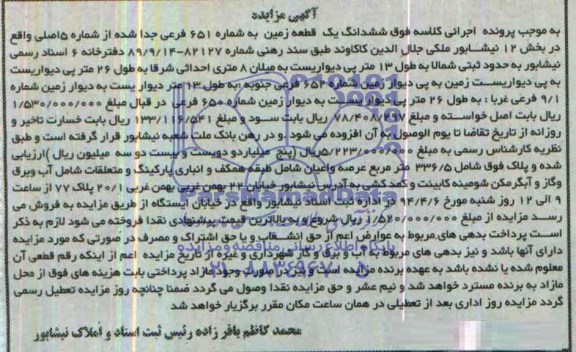 آگهی مزایده
به موجب پرونده اجرائی کلاسه فوق ششدانگ یک قطعه زمین به شماره ۶۵۱ فرعی جدا شده از شماره ۵اصلی واقع
در بخش ۱۲ نیشابور ملکی جلال الدین کاکاوند طبق سند رهنی شماره ۸۲۱۲۷-۸۹/۹/۱۴ دفترخانه ۶ اسناد رسمی
نیشابور به حدود ثبتی شمالا به طول ۱۳ متر پی دیواریست به میلان ۸ متری احداثی شرقا به طول ۲۶ متر پی دیواریست
به پی دیواریست زمین به پی دیوار زمین شماره ۶۵۲ فرعی جنوبا ،به طول ۱۳ متر دیوار یست به دیوار زمین شماره
۹/۱ فرعی غربا ، به طول ۲۶ متر پی دیوار یست به دیوار زمین شماره ۶۵۰ فرعی در قبال مبلغ ۱/۵۳۰/۰۰۰/۰۰۰
ریال بابت اصل خواسته و مبلغ ۷۸/۴۰۸/۲۹۷ ریال بابت سود و مبلغ ۱۳۳/۱۱۶/۵۴۱ ریال بابت خسارت تاخیر و
روزانه از تاریخ تقاضا تا یوم الوصول به آن افزوده می شود و در رهن بانک ملت شعبه نیشابور قرار گرفته است و طبق
نظریه کارشناس رسمی به مبلغ ۵/۲۲۳/۰۰۰/۰۰۰ریال (پنج میلیاردو دویست و بیست دو سه میلیون ریال )ارزیابی
شده و پلاک فوق شامل ۳۳۶/۵ متر مربع عرصه واعیان شامل طبقه همکف و انباری پارکینگ و متعلقات شامل آب وبرق
وگاز و آبگرمکن شومینه کابینت و کمد کشی به آدرس نیشابور خیابان ۲۲ بهمن غربی بهمن غربی ۲۰/۱ پلاک ۷۷ از ساعت
۹ الی ۱۲ روز شنبه مورخ ۹۴/۴/۶ در اداره ثبت اسناد نیشابور واقع در خیابان ایستگاه از طریق مزایده به فروش می
رسد مزایده از مبلغ ریال شروع و به بالاترین قیمت پیشنهادی نقدا فروخته می شود لازم به ذکر
است پرداخت بدهی های مربوط به عوارض اعم از حق انشعاب و یا حق اشتراک و مصرف در صورتی که مورد مزایده
دارای آنها باشد و نیز بدهی های مربوط به آب و برق و گاز شهرداری و غیره از تاریخ مزایده اعم از اینکه رقم قطعی آن
معلوم شده یا نشده باشد به عهده برنده مزایده است و نیز در صورت وجود مازاد پرداختی بابت هزینه های فوق از محل
مازاد به برنده مسترد خواهد شد و نیم عشر و حق مزایده نقدا وصول می گردد ضمنا چنانچه روز مزایده تعطیل رسمی
گردد مزایده روز اداری بعد از تعطیلی در همان ساعت مکان مقرر برگزار خواهد شد
محمد کاظم باقر زاده رئیس ثبت اسناد و املاک نیشابور